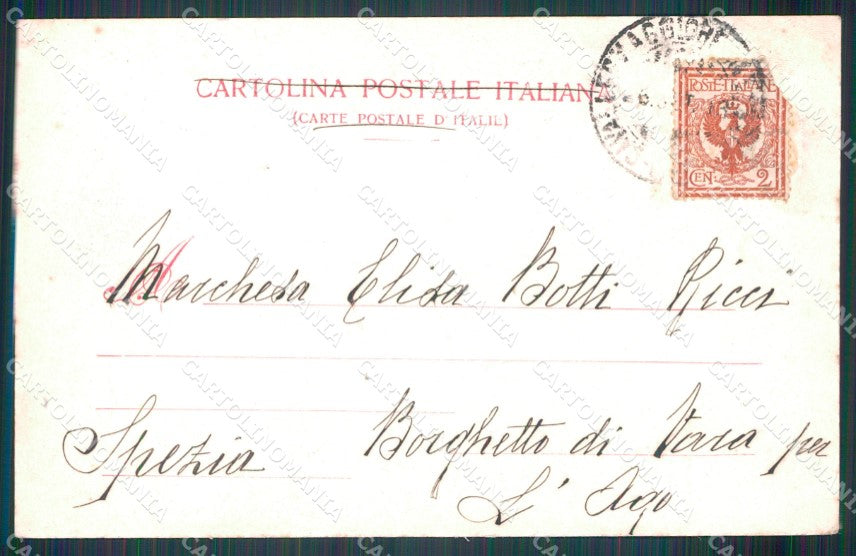 CARTOLINA POSTALE ITALIANA
(CARTE POSTALE D'ITALIE)
POSTE ITALIANE
CEN. 2
A
Marchesa Elisa Botti Ricci
Borghetto di Vara per
L' Ago
Spezia
CARTOLINOMANIA